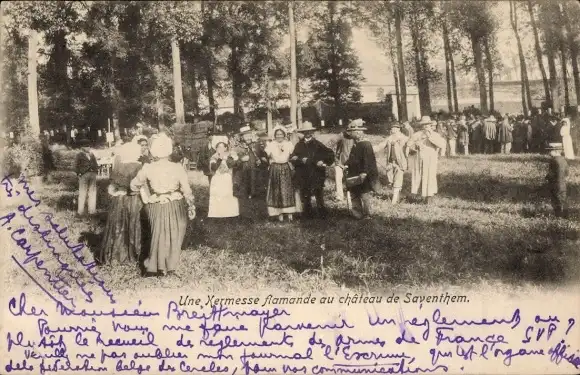 Une Kermesse flamande au château de Saventhem.
Très
distinguées salutations
A. Carpentier
Cher Monsieur Breittmayer
Pourriez vous me faire parvenir un règlement ou
plutôt le recueil des règlements des armes de France SVP ?
Veuillez ne pas oublier mon journal l'Escrime, qui est l'organe officiel
de la fédération belge des Cercles, pour vos communications.